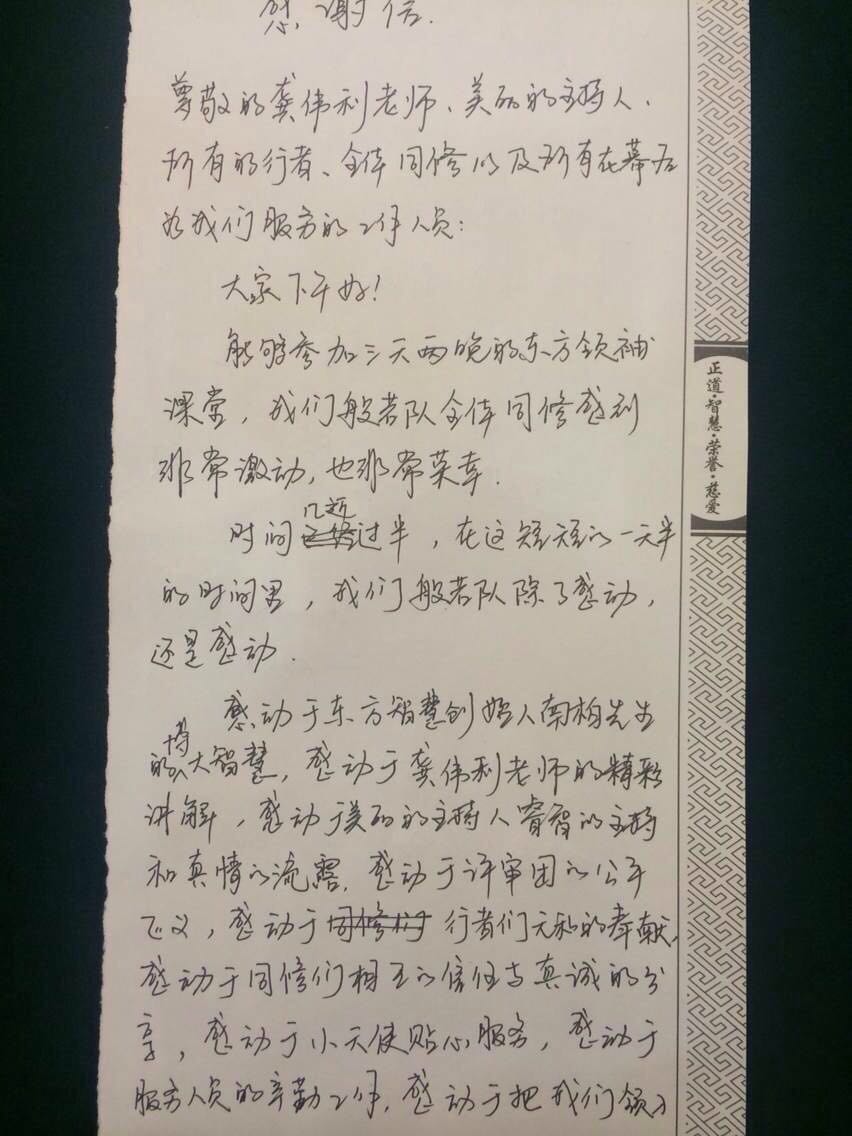 感谢信.
尊敬的龚伟利老师、美丽的主持人、
所有的行者、全体同修以及所有在幕后
为我们服务的工作人员:
大家下午好!
能够参加三天两晚的东方领袖
课堂,我们般若队全体同修感到
非常激动,也非常荣幸.
几近
时间过半,在这短短的一天半
的时间里,我们般若队除了感动,
还是感动.
感动于东方智慧创始人南柏先生
博
的大智慧,感动于龚伟利老师的精彩
讲解,感动于美丽的主持人睿智的主持
和真情的流露.感动于评审团的公平
正义,感动于同修们行者们无私的奉献,
感动于同修们相互的信任与真诚的分
享,感动于小天使贴心服务,感动于
服务人员的辛勤工作,感动于把我们领入
正道·智慧·荣誉·慈爱